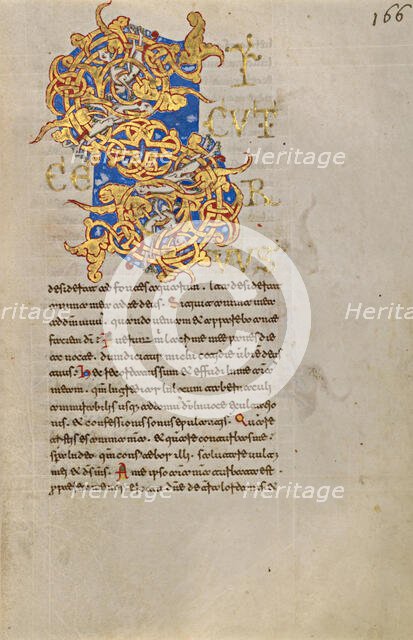 166
S I
CVT
CE R
VUS
desiderat ad fontes aquarum . Ita desiderat
anima mea ad te deus . Sitiuit anima mea
ad dm uiuum . quando ueniam & apparebo ante
faciem di : Fuerunt mihi lacrime mee panes die
ac nocte . dum dicitur mihi cotidie ubi est deus
tuus . Hec recordatus sum & effudi in me
meam . qm ingrediar in locum tabernaculi
admirabilis usq; ad domum di . In uoce exultatio
nis & confessionis sonus epulantis . Quare
tristis es anima mea . & quare conturbas me .
Spera in deo qm confitebor illi . salutare uultus
mei & ds ms . A me ipso anima mea turbata est .
propterea memor ero tui dne de terra iordanis &
Heritage
Heritage
Heritage
Heritage
Heritage
Heritage
Heritage
Heritage